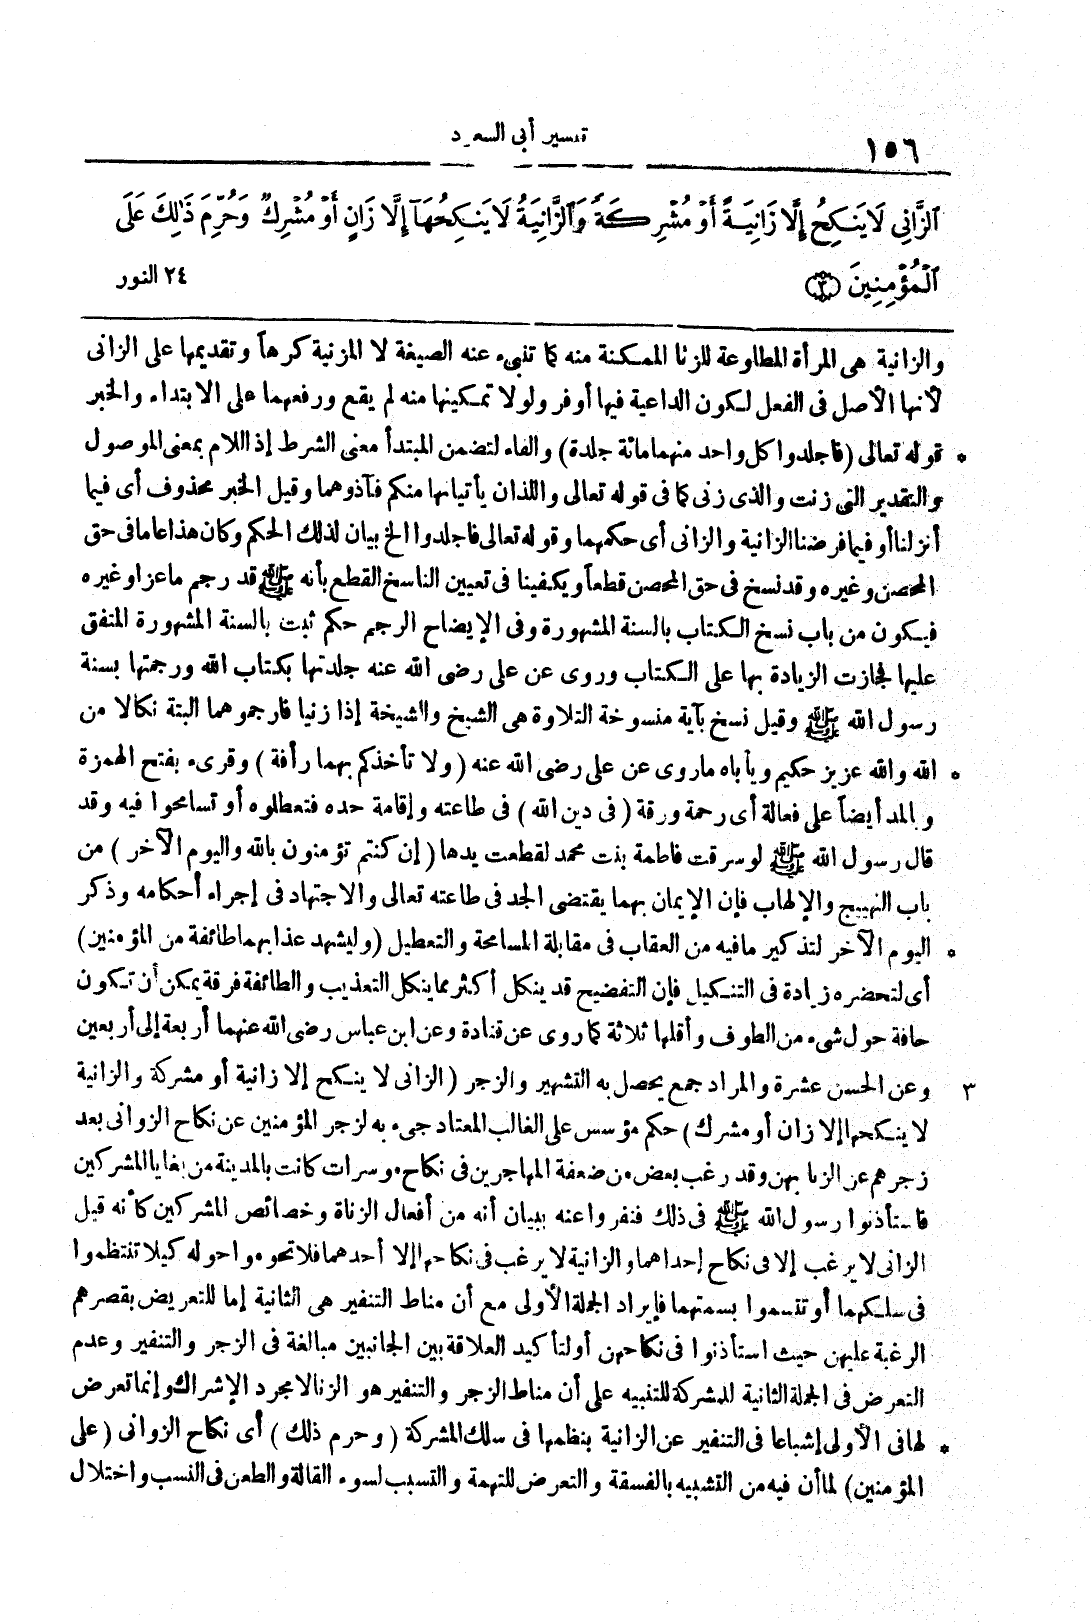 ١٥٦
تفسير أبي السعود
ٱلزَّانِى لَا يَنكِحُ إِلَّا زَانِيَةً أَوْ مُشْرِكَةً وَٱلزَّانِيَةُ لَا يَنكِحُهَآ إِلَّا زَانٍ أَوْ مُشْرِكٌ وَحُرِّمَ ذَٰلِكَ عَلَى
ٱلْمُؤْمِنِينَ ﴿٣﴾ ٢٤ النور
والزانية هى المرأة المطاوعة للزنا الممكنة منه كما تنبىء عنه الصيغة لا المزنية كرهاً وتقديمها على الزانى
لأنها الأصل فى الفعل لكون الداعية فيها أوفر ولولا تمكينها منه لم يقع ورفعهما على الابتداء والخبر
* قوله تعالى (فاجلدوا كل واحد منهما مائة جلدة) والفاء لتضمن المبتدأ معنى الشرط إذ اللام بمعنى الموصول
والتقدير التى زنت والذى زنى كما فى قوله تعالى واللذان يأتيانها منكم فآذوهما وقيل الخبر محذوف أى فيما
أنزلنا أو فيما فرضنا الزانية والزانى أى حكمهما وقوله تعالى فاجلدوا الخ بيان لذلك الحكم وكان هذا عاما فى حق
المحصن وغيره وقد نسخ فى حق المحصن قطعاً ويكفينا فى تعيين الناسخ القطع بأنه ﷺ قد رجم ماعزا وغيره
فيكون من باب نسخ الكتاب بالسنة المشهورة وفى الإيضاح الرجم حكم ثبت بالسنة المشهورة المتفق
عليها فجازت الزيادة بها على الكتاب وروى عن على رضى الله عنه جلدتها بكتاب الله ورجمتها بسنة
رسول الله ﷺ وقيل نسخ بآية منسوخة التلاوة هى الشيخ والشيخة إذا زنيا فارجموهما البتة نكالا من
* الله والله عزيز حكيم ويأباه ما روى عن على رضى الله عنه (ولا تأخذكم بهما رأفة) وقرىء بفتح الهمزة
وبالمد أيضاً على فعالة أى رحمة ورقة (فى دين الله) فى طاعته وإقامة حده فتعطلوه أو تسامحوا فيه وقد
قال رسول الله ﷺ لو سرقت فاطمة بنت محمد لقطعت يدها (إن كنتم تؤمنون بالله واليوم الآخر) من
باب التهييج والإلهاب فإن الإيمان بهما يقتضى الجد فى طاعته تعالى والاجتهاد فى إجراء أحكامه وذكر
* اليوم الآخر لتذكير ما فيه من العقاب فى مقابلة المسامحة والتعطيل (وليشهد عذابهما طائفة من المؤمنين)
أى لتحضره زيادة فى التنكيل فإن التفضيح قد ينكل أكثر مما ينكل التعذيب والطائفة فرقة يمكن أن تكون
حافة حول شىء من الطوف وأقلها ثلاثة كما روى عن قتادة وعن ابن عباس رضى الله عنهما أربعة إلى أربعين
٣ وعن الحسن عشرة والمراد جمع يحصل به التشهير والزجر (الزانى لا ينكح إلا زانية أو مشركة والزانية
لا ينكحها إلا زان أو مشرك) حكم مؤسس على الغالب المعتاد جىء به لزجر المؤمنين عن نكاح الزوانى بعد
زجرهم عن الزنا بهن وقد رغب بعض من ضعفة المهاجرين فى نكاح موسرات كانت بالمدينة من بغايا المشركين
فاستأذنوا رسول الله ﷺ فى ذلك فنفروا عنه ببيان أنه من أفعال الزناة وخصائص المشركين كأنه قيل
الزانى لا يرغب إلا فى نكاح إحداهما والزانية لا يرغب فى نكاحها إلا أحدهما فلا تحوموا حوله كيلا تنتظموا
فى سلكهما أو تتسموا بسمتهما فإيراد الجملة الأولى مع أن مناط التنفير هى الثانية إما للتعريض بقصرهم
الرغبة عليهن حيث استأذنوا فى نكاحهن أو لتأكيد العلاقة بين الجانبين مبالغة فى الزجر والتنفير وعدم
التعرض فى الجملة الثانية للمشركة للتنبيه على أن مناط الزجر والتنفير هو الزنا لا مجرد الإشراك وإنما تعرض
* لها فى الأولى إشباعا فى التنفير عن الزانية بنظمها فى سلك المشركة (وحرم ذلك) أى نكاح الزوانى (على
المؤمنين) لما أن فيه من التشبيه بالفسقة والتعرض للتهمة والتسبب لسوء القالة والطعن فى النسب واختلال